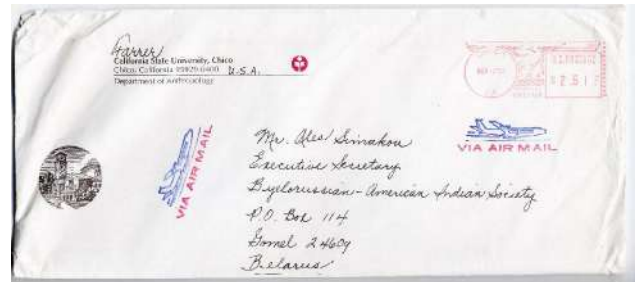 Farrer
California State University, Chico
Chico, California 95929-0400 U.S.A.
Department of Anthropology
VIA AIR MAIL
VIA AIR MAIL
Mr. Ales Simakou
Executive Secretary
Byelorussian-American Indian Society
P.O. Box 114
Gomel 24609
Belarus